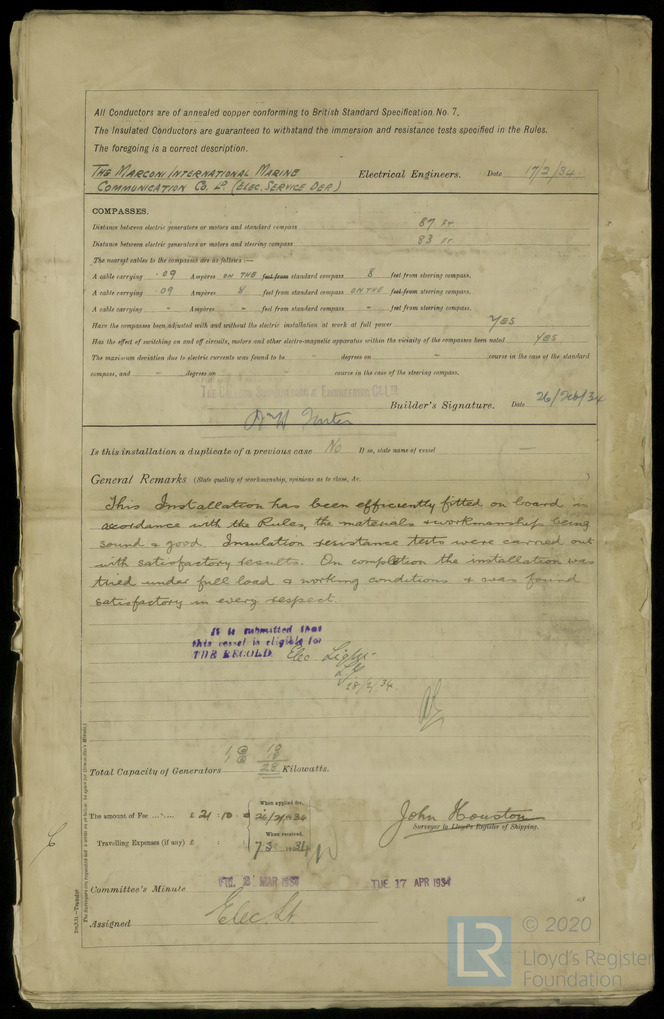 All Conductors are of annealed copper conforming to British Standard Specification No. 7.
The Insulated Conductors are guaranteed to withstand the immersion and resistance tests specified in the Rules.
The foregoing is a correct description.
THE MARCONI INTERNATIONAL MARINE
COMMUNICATION CO. LD (ELEC. SERVICE DEP.) Electrical Engineers. Date 17/2/34.
COMPASSES.
Distance between electric generators or motors and standard compass 87 FT
Distance between electric generators or motors and steering compass 83 FT
The nearest cables to the compasses are as follows :—
A cable carrying .09 Ampères ON THE feet from standard compass 8 feet from steering compass.
A cable carrying .09 Ampères 8 feet from standard compass ON THE feet from steering compass.
A cable carrying - Ampères - feet from standard compass - feet from steering compass.
Have the compasses been adjusted with and without the electric installation at work at full power YES
Has the effect of switching on and off circuits, motors and other electro-magnetic apparatus within the vicinity of the compasses been noted YES
The maximum deviation due to electric currents was found to be - degrees on - course in the case of the standard
compass, and - degrees on - course in the case of the steering compass.
Builder's Signature. Date 26/Feb/34
Is this installation a duplicate of a previous case No If so, state name of vessel —
General Remarks (State quality of workmanship, opinions as to class, &c.)
This Installation has been efficiently fitted on board in
accordance with the Rules, the materials & workmanship being
sound & good. Insulation resistance tests were carried out
with satisfactory results. On completion the installation was
tried under full load & working conditions & was found
satisfactory in every respect.
It is submitted that
this vessel is eligible for
THE RECORD. Elec Light
28/2/34
Total Capacity of Generators 28 Kilowatts.
The amount of Fee ... £ 21 : 10 : 0 When applied for, 26/2/1934
Travelling Expenses (if any) £ : : When received, 7.3 1934
John Houston
Surveyor to Lloyd's Register of Shipping.
Committee's Minute FRI. 2 MAR 1934 TUE. 17 APR 1934
Assigned Elec. Lt
LR © 2020
Lloyd's Register
Foundation